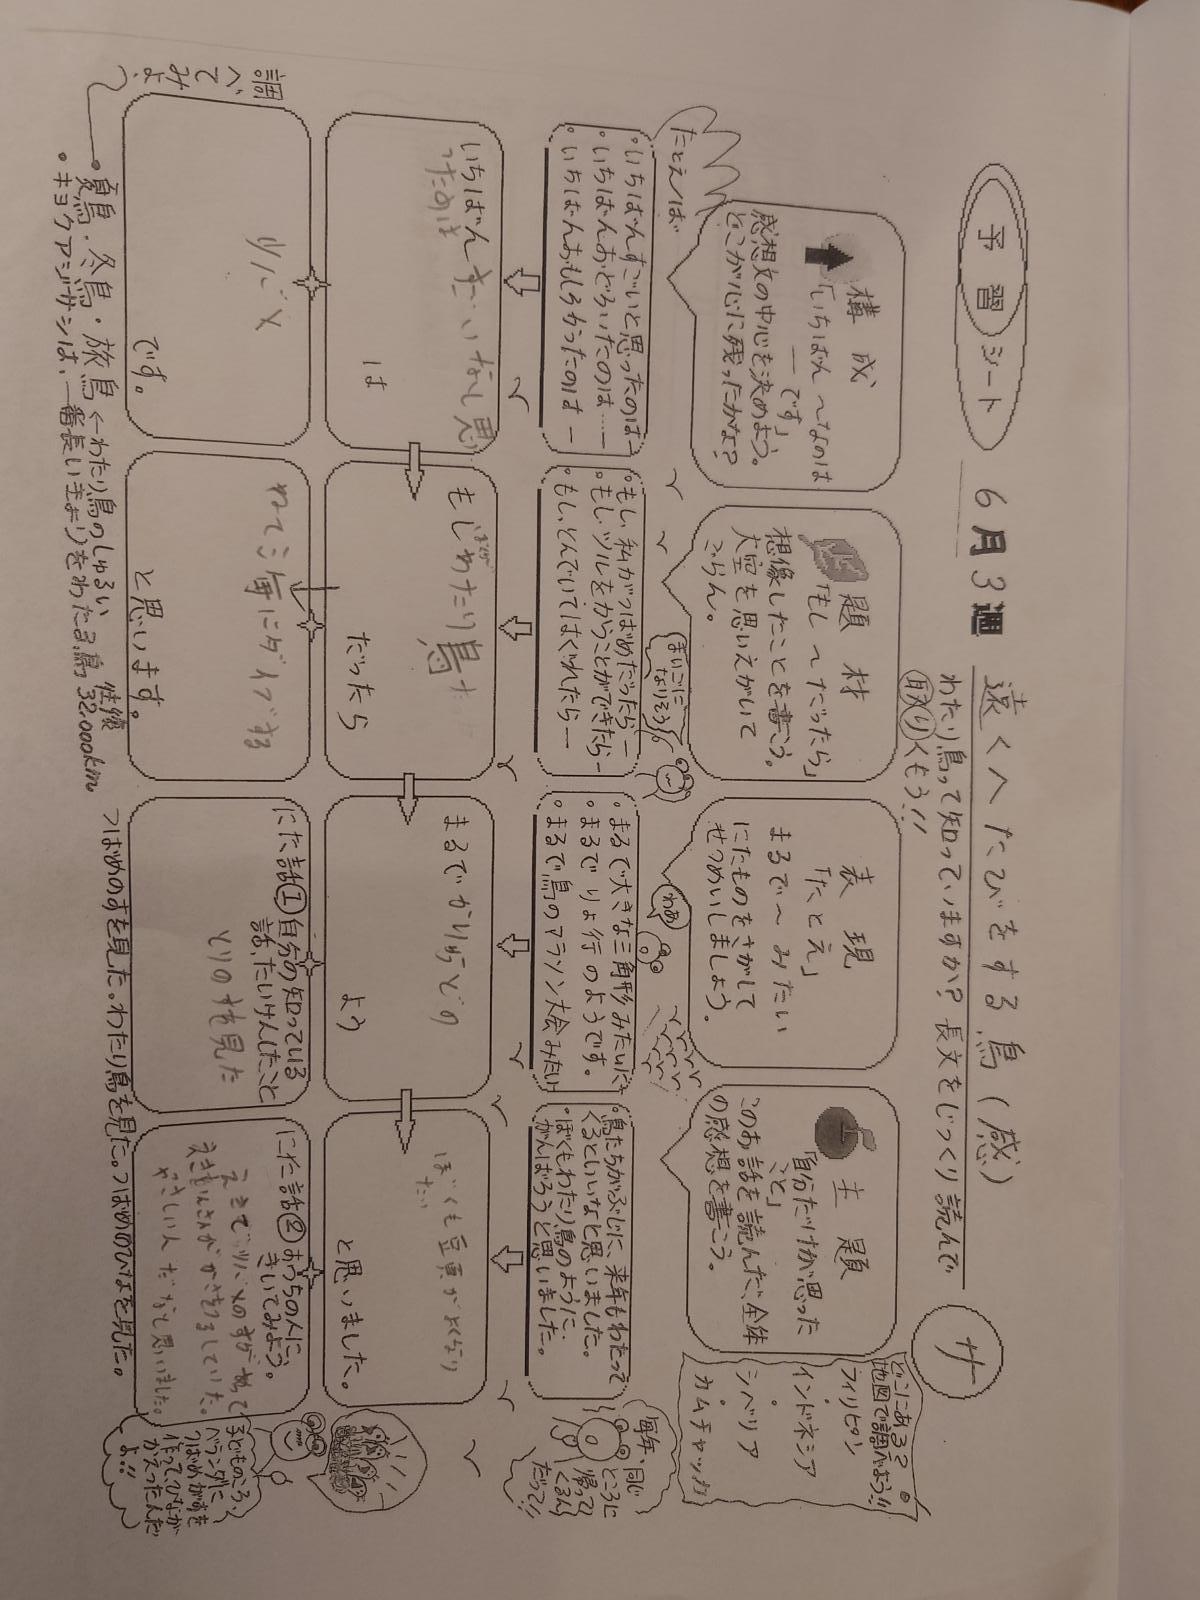 予習シート
6月3週
遠くへたびをする鳥(感)
わたり鳥って知っていますか?長文をじっくり読んで
取りくもう!!
サ
構成
「いちばん〜なのは
―です」
感想文の中心を決めよう。
どこが心に残ったかな?
題材
「もし〜だったら」
想像したことを書こう。
大空を思いえがいて
ごらん。
表現
「たとえ」
まるで〜みたい
にたものをさがして
せつめいしましょう。
主題
「自分だけが思った
こと」
このお話を読んだ、全体
の感想を書こう。
どこにある?
地図で調べよう!!
フィリピン
インドネシア
シベリア
カムチャッカ
たとえば
・いちばんすごいと思ったのは
・いちばんおどろいたのは……
・いちばんおもしろかったのは―
・もし、私がつばめだったら―
・もし、ツルをかうことができたら―
・もし、とんでいてはぐれたら―
まいごに
なりそう
・まるで大きな三角形みたいに
・まるでりょ行のようです。
・まるで鳥のマラソン大会みたい
わあ
・鳥たちがぶじに、来年もわたって
くるといいなと思いました。
・ぼくもわたり鳥のように、
がんばろうと思いました。
毎年、同じ
ところに
帰って
くるん
だって!!
いちばんすごいなと思
ったのは
は
もしぼくがわたり鳥だ
だったら
まるで
よう
ぼくも
たい
と思いました。
ツバメ
です。
海にダイブする
と思います。
にた話①自分の知っている
話、たいけんしたこと
とりのすを見た
にた話②おうちの人に、
きいてみよう。
えきでツバメのすがあって
えきいんさんが
やさしい人だなと思いました。
子どものころ、
ベランダに
つばめがすを
作ってひなが
かえったんだ
よ!!
調べてみよ
・夏鳥・冬鳥・旅鳥<わたり鳥のしゅるい
・キョクアジサシは、一番長いきょりをわたる鳥 往復32,000km。
つばめのすを見た。わたり鳥を見た。つばめのひなを見た。